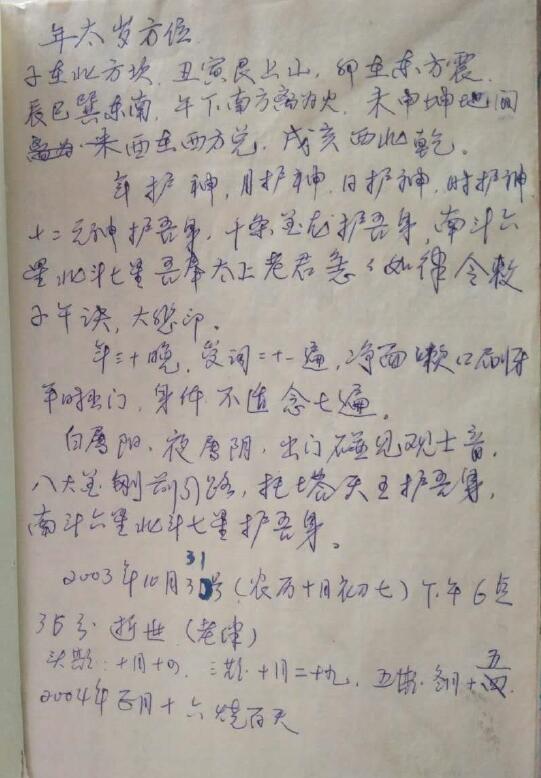 年太岁方位
子在北方坎，丑寅艮上山，卯在东方震，
辰巳巽东南，午下南方离为火，未申坤地间
酉在西方兑，戌亥西北乾。
年护神，月护神，日护神，时护神
十二元神护吾身，十条金龙护吾身，南斗六
星北斗七星吾奉太上老君急々如律令敕
子午诀，大悲印。
年三十晚，发词二十一遍，净面嗽口刷牙
平时出门，身体不适念七遍。
白属阳，夜属阴，出门碰见观士音，
八大金刚前引路，托塔天王护吾身，
南斗六星北斗七星护吾身。
31
2003年10月号（农历十月初七）下午6点
35分逝世
头期：十月十四，三期：十月二十九，五期：
五
2004年正月十六烧百天